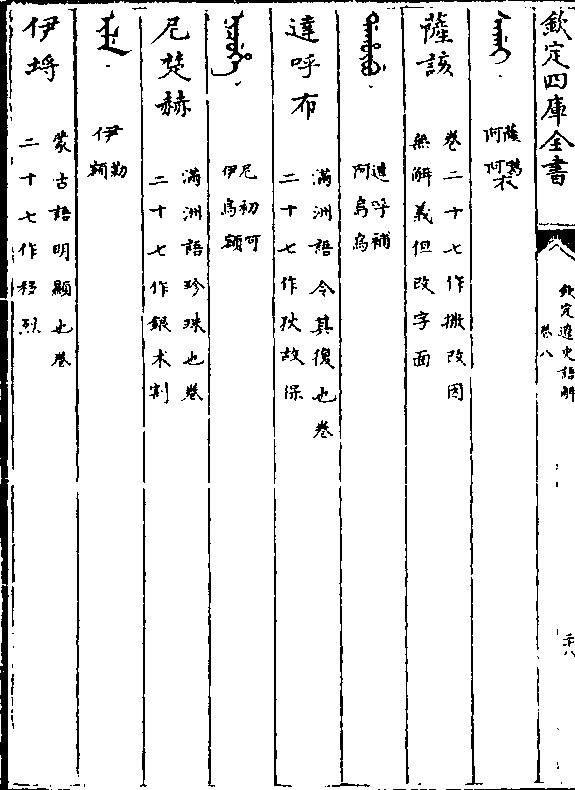 欽定四庫全書
欽定遼史語解
卷八
二十八
ᠰᠠᡤᠠᡳ
薩衣
阿阿
薩該
卷二十七作撒改因
無解義但改字面
ᡩᠠᡥᡡᠪᡠ
達呼補
阿烏烏
達呼布
滿洲語令其復也卷
二十七作狄故保
ᠨᡳᠴᡠᡥᡝ
尼初呵
伊烏額
尼楚赫
滿洲語珍珠也卷
二十七作銀术割
ᡳᠯᡝ
伊勒
額
伊埒
蒙古語明顯也卷
二十七作移烈